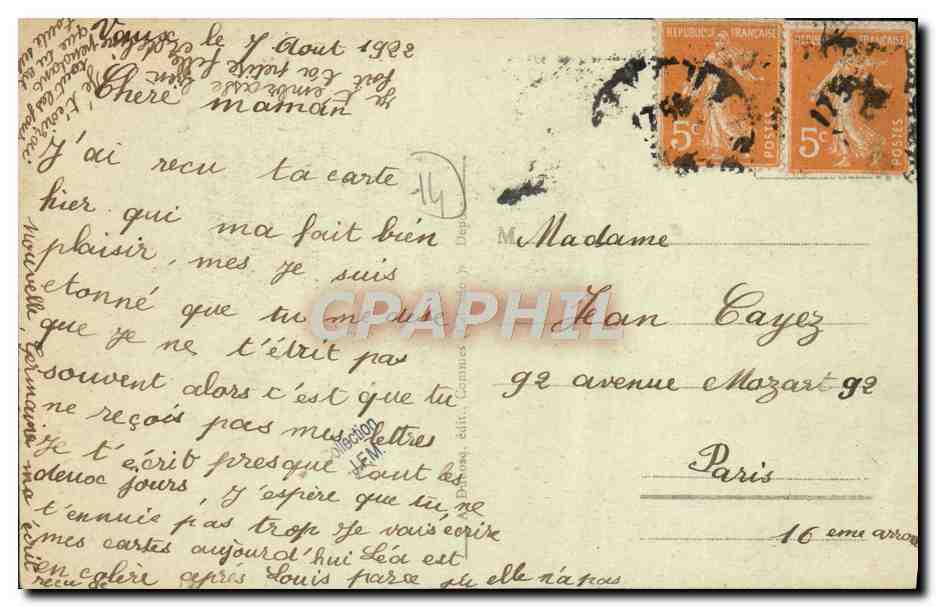 Vaux le 7 Aout 1922
Chere maman
J'ai recu ta carte
hier qui ma fait bien
plaisir, mes je suis
etonné que tu me dise
que je ne t'étrit pas
souvent alors c'est que tu
ne reçois pas mes lettres
Je t'écrit presque tout les
deux jours. J'espère que tu ne
t'ennuie pas trop Je vais écrire
mes cartes aujourd'hui Léa est
en colère après Louis parce qu'elle n'a pas
recu de
nouvelle Germaine ma écrit
Je t'ecrirai
tout les jours
je t'embrasse bien
fort ta petite fille
14
M Madame
Jean Cayez
92 avenue Mozart 92
Paris
16 eme arron
REPUBLIQUE FRANÇAISE
5c
POSTES
REPUBLIQUE FRANÇAISE
5c
POSTES
17 5
17 5
édit., Commines
Collection
J.F.M.
CPAPHIL